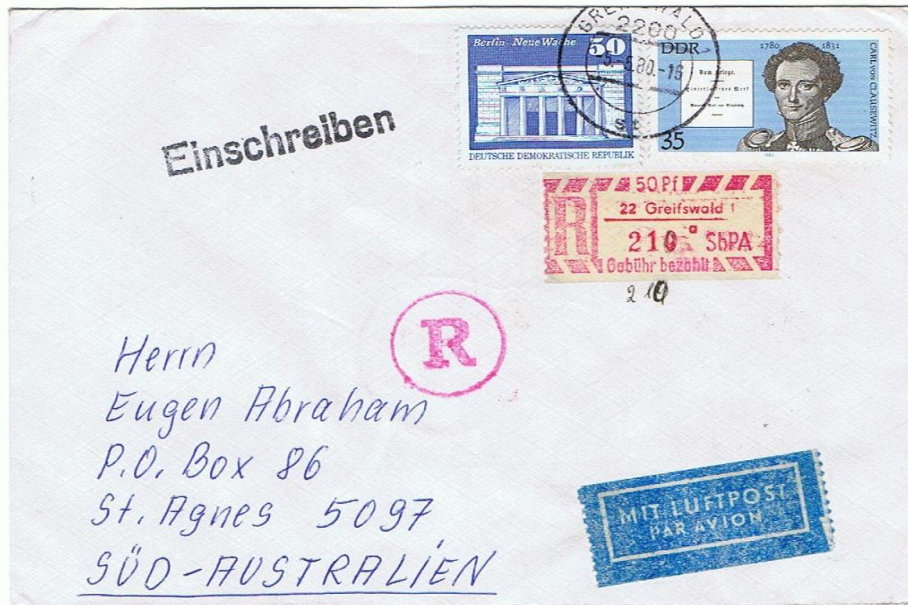 GREIFSWALD
2200
-5.-6.80.-16
Berlin - Neue Wache 50
DEUTSCHE DEMOKRATISCHE REPUBLIK
DDR 1780 1831
CARL VON CLAUSEWITZ
Vom Kriege.
35
Einschreiben
50 Pf
R 22 Greifswald 1
210 a SbPA
Gebühr bezahlt
210
R
Herrn
Eugen Abraham
P.O. Box 86
St. Agnes 5097
SÜD-AUSTRALIEN
MIT LUFTPOST
PAR AVION